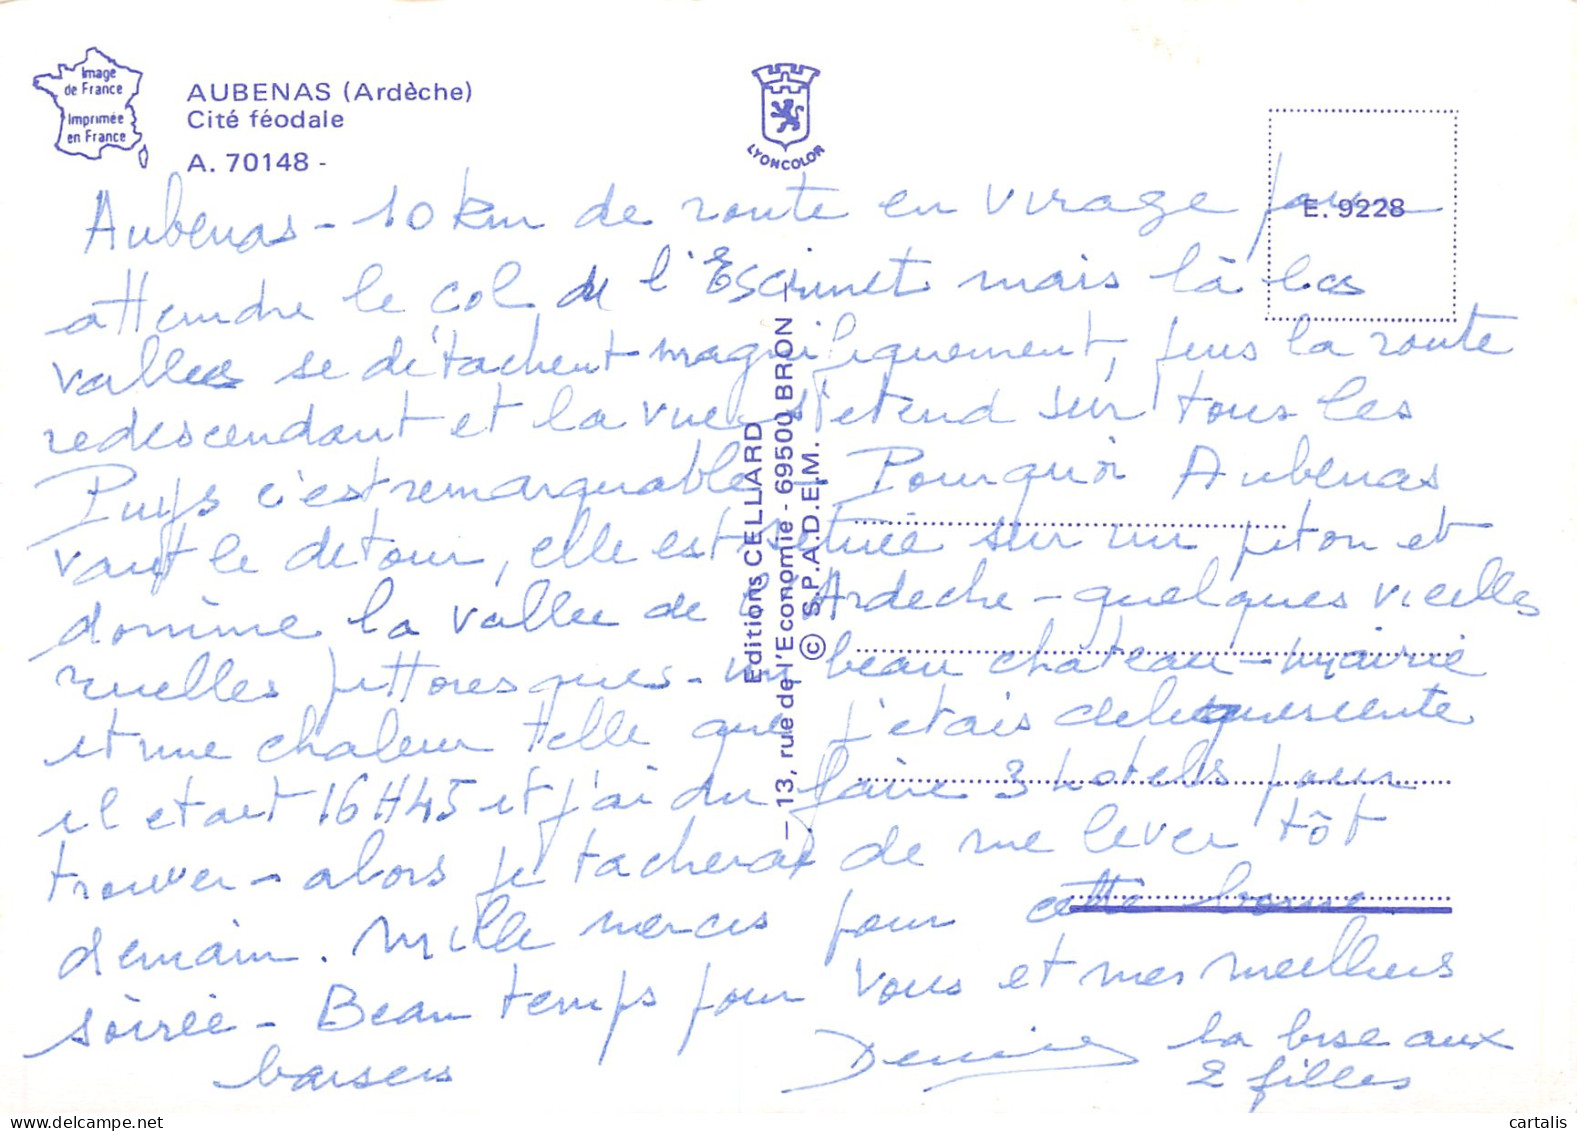 Image
de France
Imprimée
en France
AUBENAS (Ardèche)
Cité féodale
A. 70148 -
LYONCOLOR
E. 9228
Editions CELLARD
- 13, rue de l'Economie - 69500 BRON -
© S.P.A.D.E.M.
Aubenas - 10 km de route en virage pour
attendre le col de l'Escrinet mais là les
vallees se détachent magnifiquement, puis la route
redescendant et la vue s'etend sur tous les
Puys c'est remarquable - Pourquoi Aubenas
vaut le detour, elle est située sur un piton et
domine la vallée de l'Ardeche - quelques vieilles
ruelles pittoresques - un beau château - mairie
et une chaleur telle que j'etais deliquescente
il etait 16H45 et j'ai du faire 3 hotels pour
trouver - alors je tacherai de me lever tôt
demain. Mille mercis pour cette bonne
soirée - Beau temps pour vous et mes meilleurs
baisers
Denise
la bise aux
2 filles
cartalis